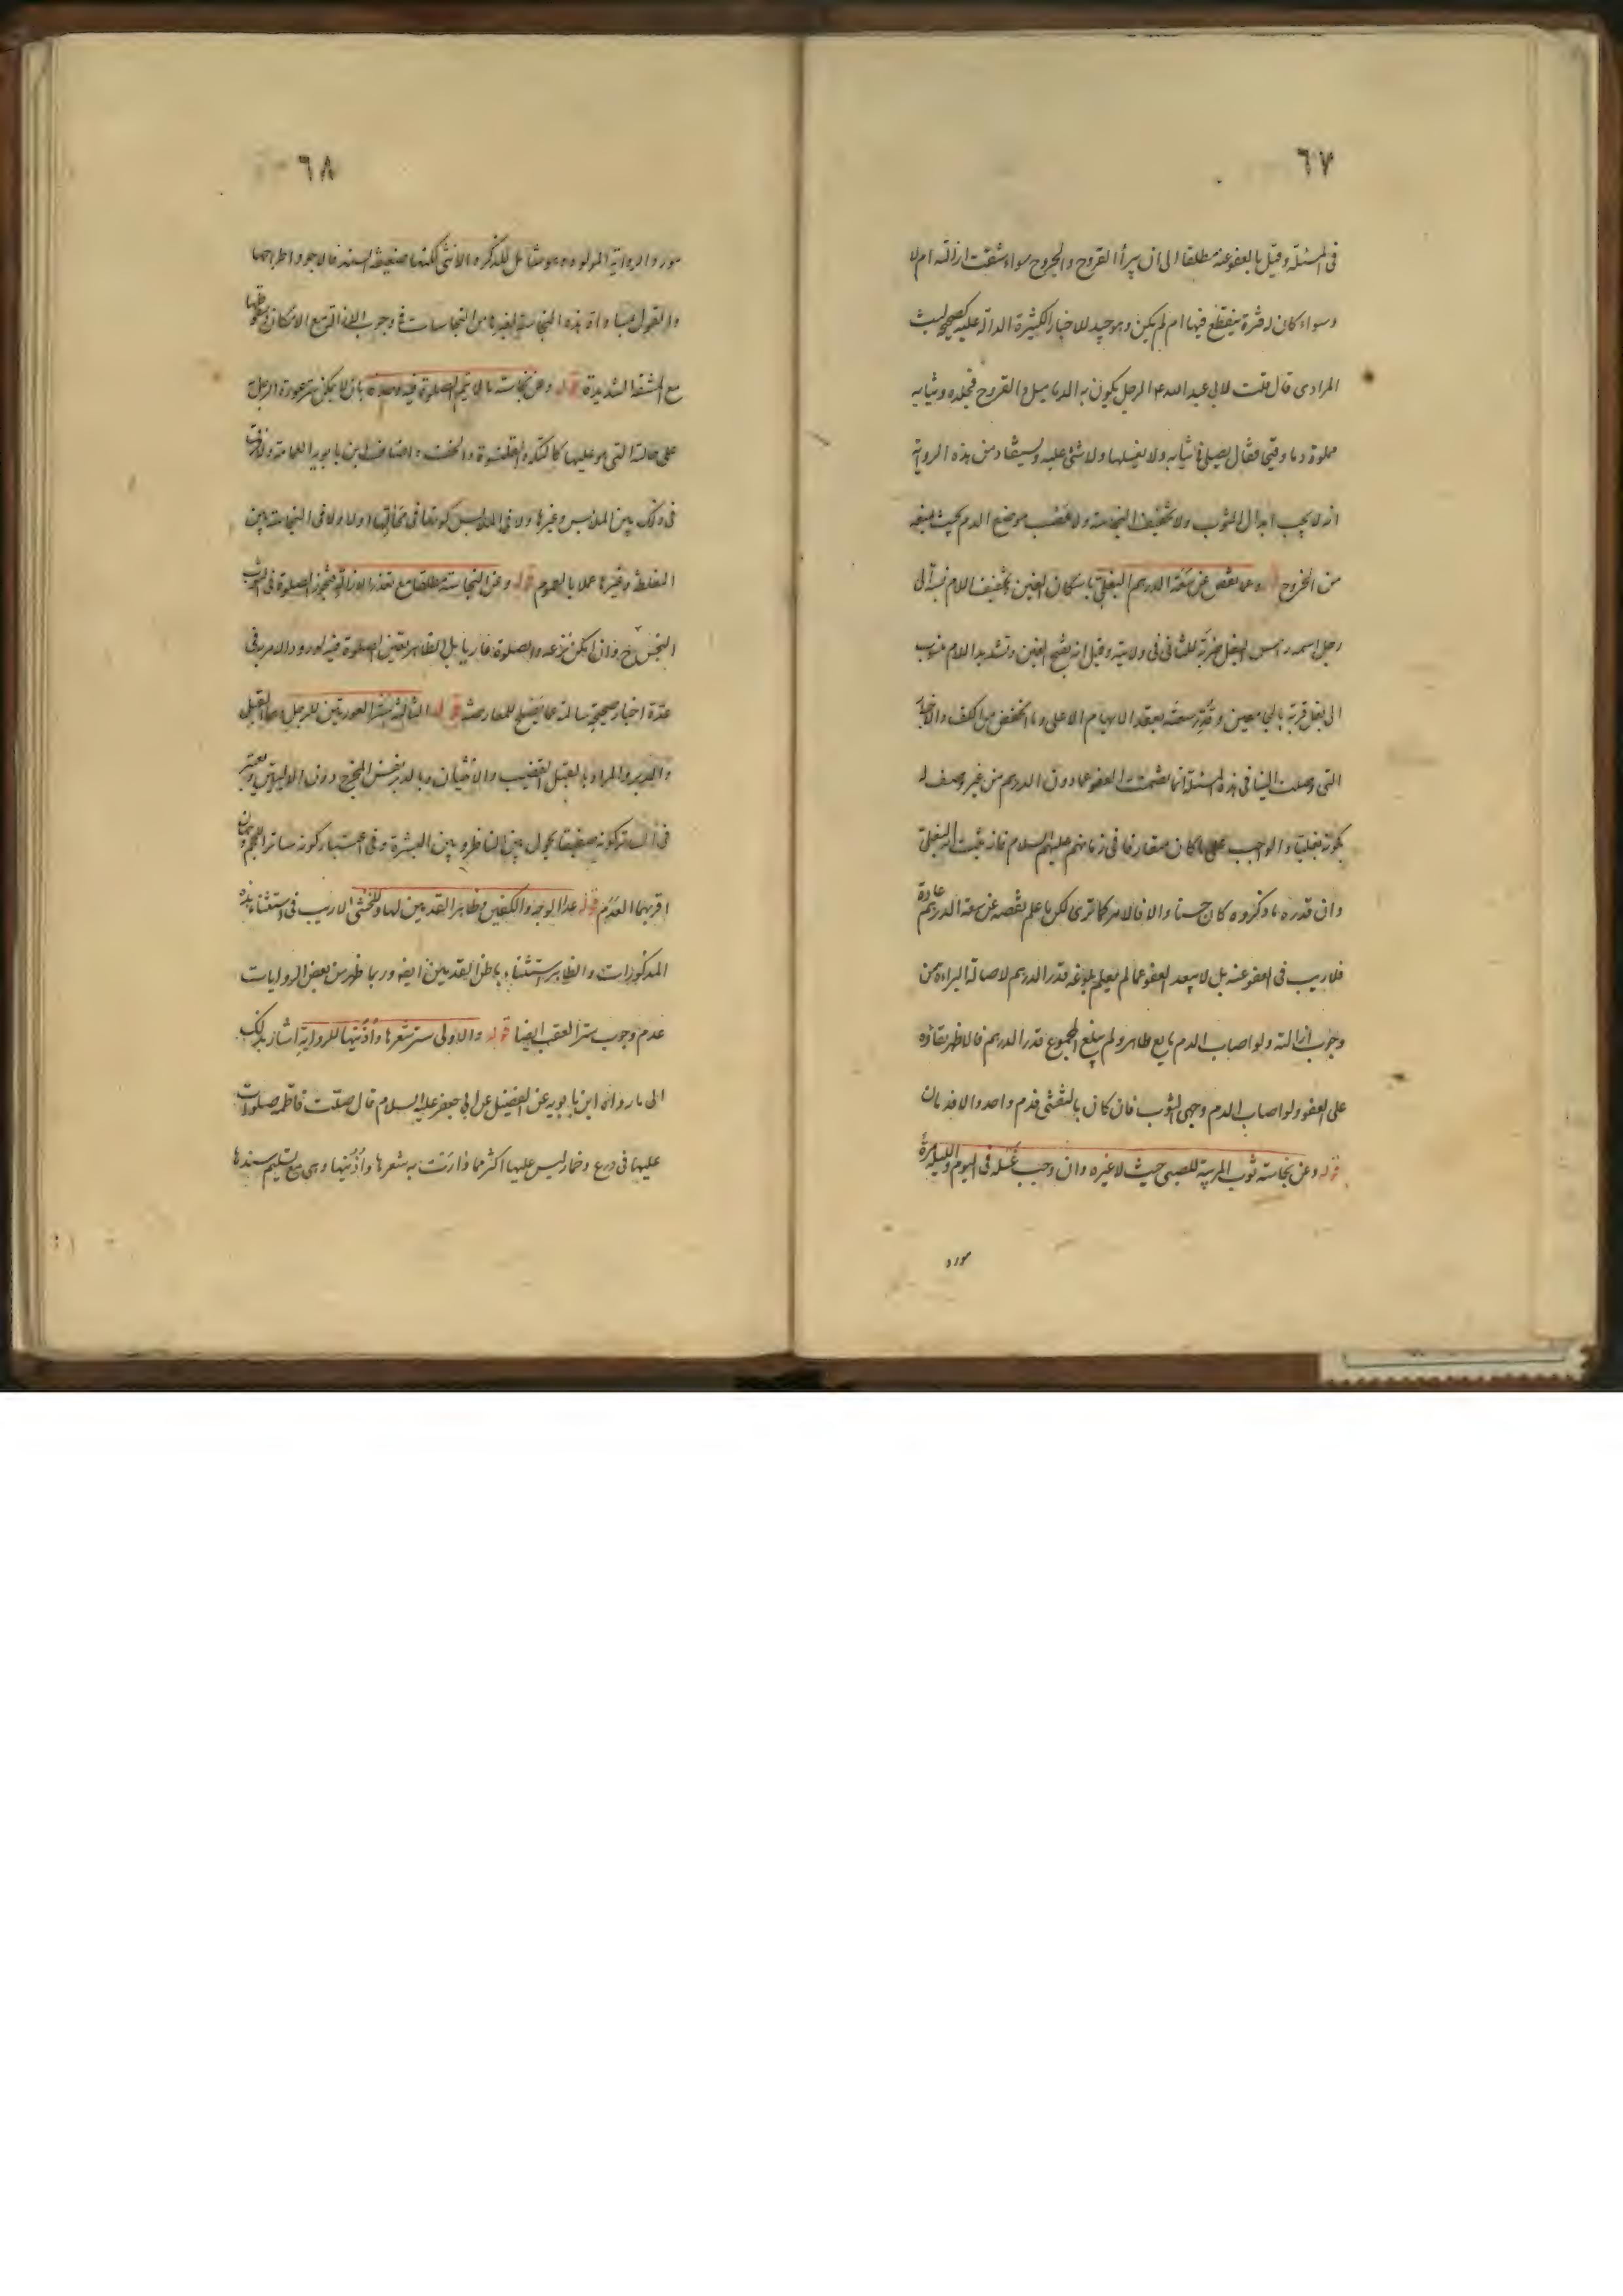 ٦٧
فى المسئلة وقيل بالعفو عنه مطلقا الى ان يبرأ القروح والجروح سواء شقت ازالته ام لا
وسواء كان له فترة ينقطع فيها ام لم يكن وهو جيد للاخبار الكثيرة الدالة عليه كصحيحة ليث
المرادى قال قلت لابى عبد الله ع الرجل يكون به الدماميل والقروح فجلده وثيابه
مملوة دما وقيحا فقال يصلى فى ثيابه ولا يغسلها ولا شئ عليه ويستفاد من هذه الرواية
انه لا يجب ابدال الثوب ولا تخفيف النجاسة ولا عصب موضع الدم بحيث يمنعه
من الخروج قوله وعما نقص عن سعة الدرهم البغلى باسكان الغين وتخفيف اللام نسبة الى
رجل اسمه راس البغل ضربه للثانى فى ولايته وقيل انه بفتح الغين وتشديد اللام منسوب
الى بغل قرية بالجامعين وقدرت سعته بعقد الابهام الاعلى وما انخفض من الكف والاخبار
التى وصلت الينا فى هذه المسئلة انما تضمنت العفو عما دون الدرهم من غير وصف له
بكونه بغليا والواجب حمله على ما كان متعارفا فى زمانهم عليهم السلام فان ثبت انه البغلى
وان قدره ما ذكروه كان حسنا والا فالامر كما ترى لكن ما علم نقصه عن سعة الدرهم عادة
فلا ريب فى العفو عنه بل لا يبعد العفو عما لم يعلم بلوغه قدر الدرهم لاصالة البراءة من
وجوب ازالته ولو اصاب الدم مايع طاهر ولم يبلغ المجموع قدر الدرهم فالاظهر بقاؤه
على العفو ولو اصاب الدم وجهى الثوب فان كان بالتفشى فدم واحد والا فدمان
قوله وعن نجاسة ثوب المربية للصبى حيث لا غيره وان وجب غسله فى اليوم والليلة مرة
مورد
٦٨
مورد الرواية المولود وهو شامل للذكر والانثى لكنها ضعيفة السند فالاجود اطراحها
والقول بمساواة هذه النجاسة لغيرها من النجاسات فى وجوب الازالة مع الامكان وسقوطها
مع المشقة الشديدة قوله وعن نجاسة ما لا يتم الصلوة فيه وحده بان لا يمكن ستر عورة الرجل
على حالته التى هو عليها كالتكة والقلنسوة والخف واضاف ابن بابويه العمامة ولا فرق
فى ذلك بين الملابس وغيرها ولا فى الملابس كونها فى محالها اولا ولا فى النجاسة بين
المغلظة وغيرها عملا بالعموم قوله وعن النجاسة مطلقا مع تعذر الازالة فيجوز الصلوة فى الثوب
النجس ح وان امكن نزعه والصلوة عاريا بل الظاهر تعين الصلوة فيه لورود الامر به فى
عدة اخبار صحيحة سالمة عما يصلح للمعارضة قوله الثالثة ستر العورتين للرجل وهما القبل
والدبر والمراد بالقبل القضيب والانثيان وبالدبر نفس المخرج دون الاليتين ويعتبر
فى الساتر كونه صفيقا يحول بين الناظر وبين البشرة وفى اعتبار كونه ساترا للحجم وجهان
اقربهما العدم قوله عدا الوجه والكفين وظاهر القدمين لها وللخنثى لا ريب فى استثناء هذه
المذكورات والظاهر استثناء باطن القدمين ايضا وربما ظهر من بعض الروايات
عدم وجوب ستر العقب ايضا قوله والاولى ستر شعرها واذنيها للرواية اشار بذلك
الى ما رواه ابن بابويه عن الفضيل عن ابى جعفر عليه السلام قال صلت فاطمة صلوات
عليها فى درع وخمار ليس عليها اكثر مما وارت به شعرها واذنيها وهى مع تسليم سندها